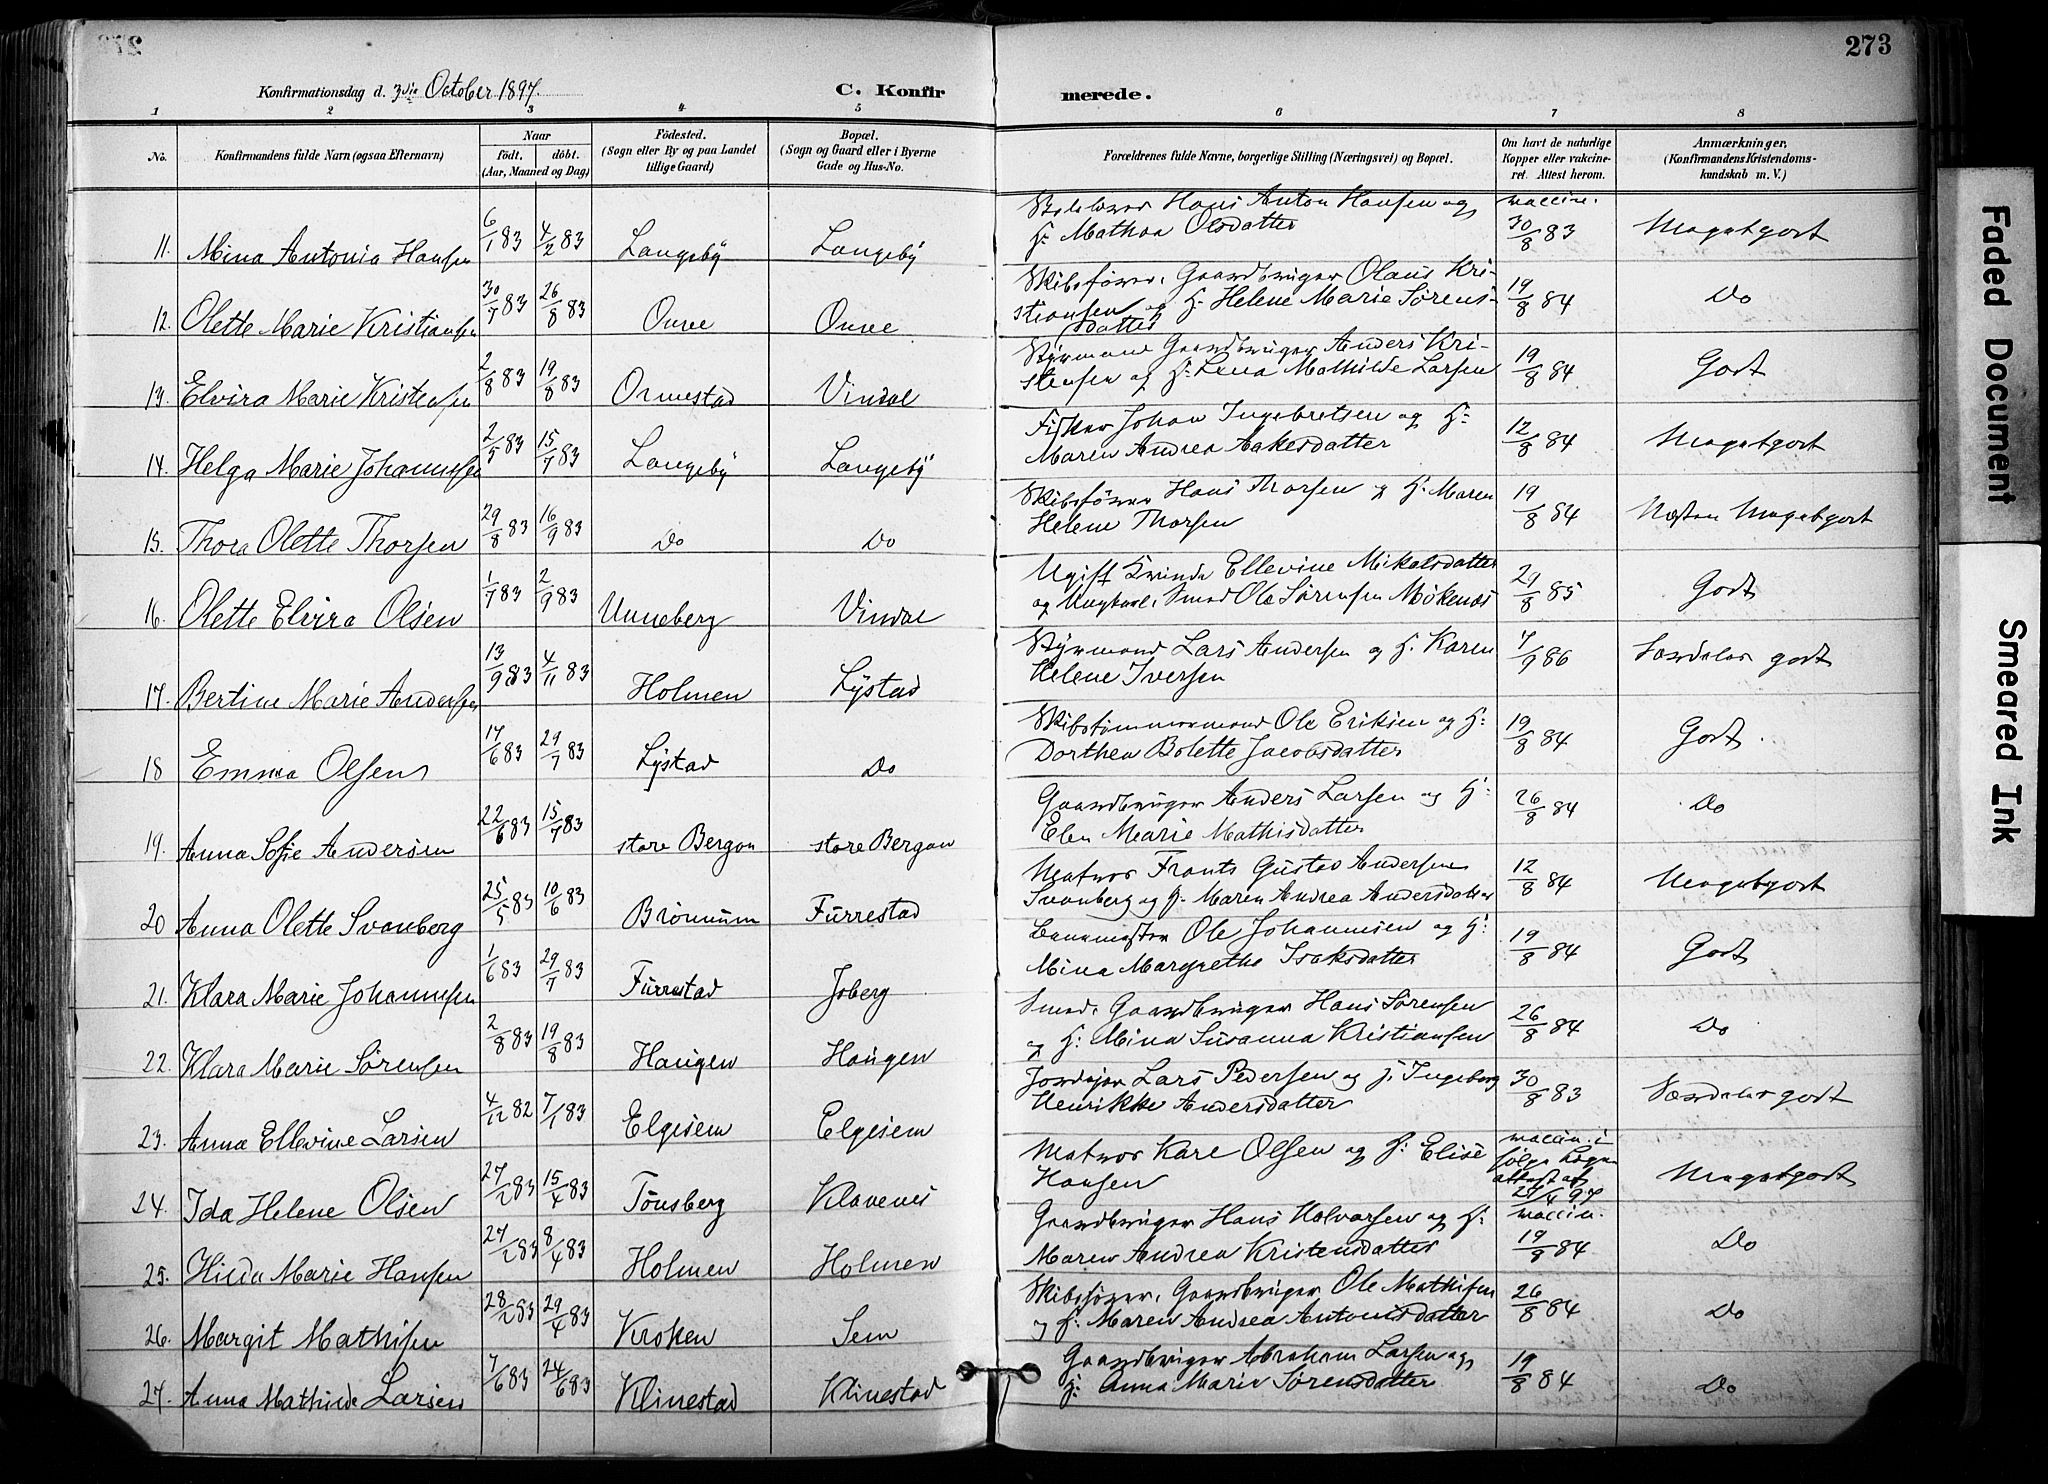 273
Konfirmationsdag d. 3die October 1897. C. Konfirmerede.
1 2 3 4 5 6 7 8
No. Konfirmandens fulde Navn (ogsaa Efternavn) Naar födt. döbt. (Aar, Maaned og Dag) Födested. (Sogn eller By og paa Landet tillige Gaard) Bopæl. (Sogn og Gaard eller i Byerne Gade og Hus-No. Forældrenes fulde Navne, borgerlige Stilling (Næringsvei) og Bopæl. Om havt de naturlige Kopper eller vakcineret. Attest herom. Anmærkninger, (Konfirmandens Kristendomskundskab m. V.)
11. Mina Antonia Hansen 6/1 83 4/2 83 Langeby Langeby Hans Anton Hansen og vaccin. 30/8 83 Megetgodt
H: Mathea Olsdatter
12. Olette Marie Kristiansen 30/7 83 26/8 83 Onve Onve Skibsfører, Gaardbruger Olaus Kri- 19/8 84 Do
stiansen og H: Helene Marie Sørens-
datter
13. Elvira Marie Kristensen 2/8 83 19/8 83 Ormestad Vindal Styrmand Gaardbruger Anders Kri- 19/8 84 Godt
stensen og H: Lena Mathilde Larsen
14. Helga Marie Johannesen 2/5 83 15/7 83 Langeby Langeby Fisker Johan Ingebretsen og H: 12/8 84 Megetgodt
Maren Andrea Aakesdatter
15. Thora Olette Thorsen 29/8 83 16/9 83 Do Do Skibsfører Hans Thorsen og H: Maren 19/8 84 Næsten Megetgodt
Helene Thorsen
16. Olette Elvira Olsen 1/7 83 2/9 83 Unneberg Vindal Ugift Kvinde Ellevine Mikalsdatter 29/8 85 Godt
og Ungkarl, Smed Ole Sørensen Møkenæs
17. Bertine Marie Andersen 13/9 83 4/11 83 Holmen Lystad Styrmand Lars Andersen og H. Karen 7/9 86 Særdeles godt
Helene Iversen
18 Emma Olsen 17/6 83 29/7 83 Lystad Do Skibstømmermand Ole Eriksen og H: 19/8 84 Godt.
Dorthea Bolette Jacobsdatter
19. Anna Sofie Andersen 22/6 83 15/7 83 store Bergan store Bergan Gaardbruger Anders Larsen og H: 26/8 84 Do
Elen Marie Mathisdatter
20 Anna Olette Svanberg 25/5 83 10/6 83 Brønnum Furrestad Matros Frants Gustav Andersen 12/8 84 Megetgodt
Svanberg og H. Maren Andrea Andersdatter
21. Klara Marie Johannesen 1/6 83 29/7 83 Furrestad Joberg Banemester Ole Johannesen og H: 19/8 84 Godt
Mina Margrethe Isaksdatter
22. Klara Marie Sørensen 2/8 83 19/8 83 Haugen Haugen Smed, Gaardbruger Hans Sørensen 26/8 84 Do
og H: Mina Susanna Kristiansen
23. Anna Ellevine Larsen 4/12 82 7/1 83 Elgesem Elgesem Jordejer Lars Pedersen og H. Ingeborg 30/8 83 Særdeles godt
Henrikke Andersdatter
24. Ida Helene Olsen 27/2 83 15/4 83 Tønsberg Klavenes Matros Karl Olsen og H: Elise vaccin. i følge Lægeattest af 27/4 97 Megetgodt
Hansen
25. Hilda Marie Hansen 27/2 83 8/4 83 Holmen Holmen Gaardbruger Hans Halvorsen og H: vaccin. 19/9 84 Do
Maren Andrea Kristensdatter
26. Margit Mathisen 28/2 83 29/4 83 Kroken Sem Skibsfører, Gaardbruger Ole Mathisen 26/8 84 Do
og H. Maren Andrea Antonisdatter
27. Anna Mathilde Larsen 7/6 83 24/6 83 Klinestad Klinestad Gaardbruger Abraham Larsen og 19/8 84 Do
H: Anna Marie Sørensdatter
Faded Document
Smeared Ink